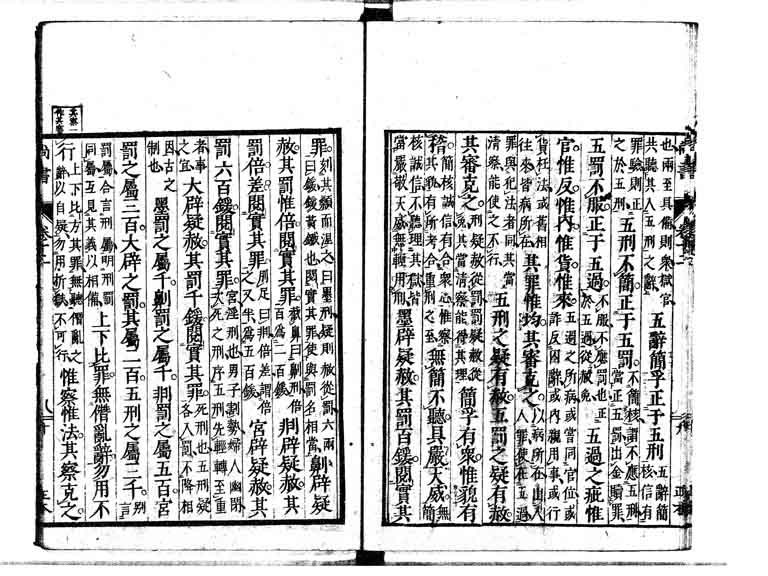 也兩至具備則衆獄官共聽其入五刑之辭五辭簡孚正于五刑五辭簡核信有
罪驗則正之於五刑五刑不簡正于五罰不簡核謂不應五刑當正五罰出金贖罪
五罰不服正于五過不服不應罰也正於五過從赦免五過之疵惟
官惟反惟內惟貨惟來五過之所病或嘗同官位或詐反囚辭或內親用事或行
貨枉法或舊相往來皆病所在其罪惟均其審克之以病所在出入人罪使在五過
罪與犯法者同其當清察能使之不行五刑之疑有赦五罰之疑有赦
其審克之刑疑赦從罰罰疑赦從免其當清察能得其理簡孚有衆惟貌有
稽簡核誠信有合衆心惟察其貌有所考合重刑之至無簡不聽具嚴天威無簡
核誠信不聽理其獄皆當嚴敬天威無輕用刑墨辟疑赦其罰百鍰閱實其
罪刻其顙而涅之曰墨刑疑則赦從罰六兩曰鍰鍰黃鐵也閱實其罪使與罰名相當劓辟疑
赦其罰惟倍閱實其罪截鼻曰劓刑倍百爲二百鍰剕辟疑赦其
罰倍差閱實其罪刖足曰剕倍差謂倍之又半爲五百鍰宮辟疑赦其
罰六百鍰閱實其罪宮淫刑也男子割勢婦人幽閉次死之刑序五刑先輕轉至重
者事之宜大辟疑赦其罰千鍰閱實其罪死刑也五刑疑各入罰不降相
因古之制也墨罰之屬千劓罰之屬千剕罰之屬五百宮
罰之屬三百大辟之罰其屬二百五刑之屬三千別言
罰屬合言刑屬明刑罰同屬互見其義以相備上下比罪無僭亂辭勿用不
行上下比方其罪無聽僭亂之辭以自疑勿用折獄不可行惟察惟法其察克之
尚書